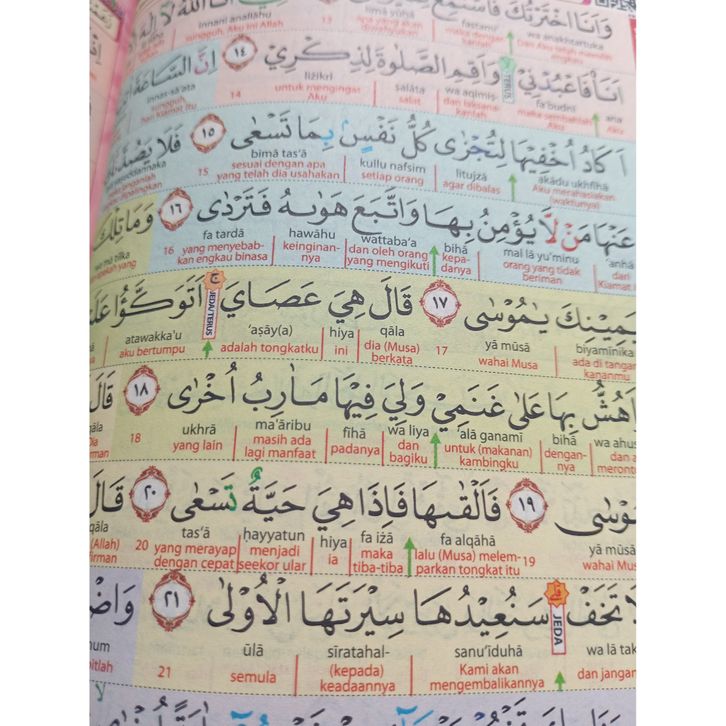 وَاَنَا اخْتَرْتُكَ فَاسْتَمِعْ
innanī anallāhu limā yūḥā fastami' wa anakhtartuka
sungguh, Aku ini Allah apa yang akan diwahyukan maka dengarkanlah Dan Aku telah memilih engkau
اَنَا۠ فَاعْبُدْنِيْ وَاَقِمِ الصَّلٰوةَ لِذِكْرِيْ ١٤ اِنَّ السَّاعَةَ
TERUS
innas-sā'ata liżikrī ṣalāta wa aqimiṣ- fa'budnī ana
sungguh, hari Kiamat itu 14 untuk mengingat Aku salat dan laksanakanlah maka sembahlah Aku Aku
اَكَادُ اُخْفِيْهَا لِتُجْزٰى كُلُّ نَفْسٍۢ بِمَا تَسْعٰى ١٥ فَلَا
bimā tas'ā kullu nafsim litujzā akādu ukhfīhā
15 sesuai dengan apa yang telah dia usahakan setiap orang agar dibalas Aku merahasiakan (waktunya)
عَنْهَا مَنْ لَّا يُؤْمِنُ بِهَا وَاتَّبَعَ هَوٰىهُ فَتَرْدٰى ١٦ وَمَا تِلْكَ
wa mā tilka fa tardā hawāhu wattaba'a bihā mal lā yu'minu 'anhā
16 yang menyebabkan engkau binasa keinginannya dan oleh orang yang mengikuti kepadanya orang yang tidak beriman dari
بِيَمِيْنِكَ يٰمُوْسٰى ١٧ قَالَ هِيَ عَصَايَ اَتَوَكَّؤُا
ج JEDA/TERUS
atawakka'u 'aṣāy(a) hiya qāla yā mūsā biyamīnika
aku bertumpu adalah tongkatku ini dia (Musa) berkata 17 wahai Musa ada di tangan kananmu
وَاَهُشُّ بِهَا عَلٰى غَنَمِيْ وَلِيَ فِيْهَا مَاٰرِبُ اُخْرٰى ١٨ قَالَ
qāla ukhrā ma'āribu fīhā wa liya 'alā ganamī bihā wa ahus
18 yang lain masih ada lagi manfaat padanya dan bagiku untuk (makanan) kambingku dengannya
يٰمُوْسٰى ١٩ فَاَلْقٰىهَا فَاِذَا هِيَ حَيَّةٌ تَسْعٰى ٢٠ قَالَ
qāla tas'ā ḥayyatun hiya fa iżā fa alqāhā yā mūsā
(Allah) 20 yang merayap dengan cepat menjadi seekor ular ia maka tiba-tiba lalu (Musa) melemparkan tongkat itu 19 wahai Musa
لَا تَخَفْ سَنُعِيْدُهَا سِيْرَتَهَا الْاُوْلٰى ٢١ وَاضْ
JEDA
ūlā sīratahal- sanu'īduhā wa lā tak
21 semula (kepada) keadaannya Kami akan mengembalikannya dan jangan